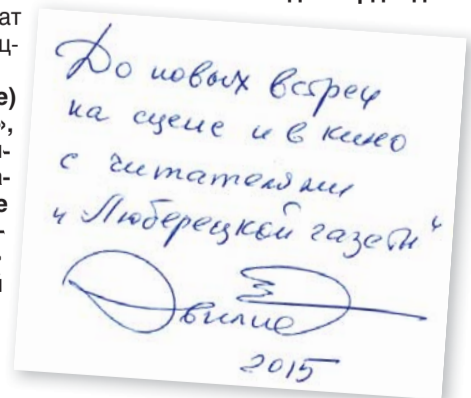 ат
ц-
е)
»,
До новых встреч
на сцене и в кино
с читателями
"Люберецкой газеты"
2015